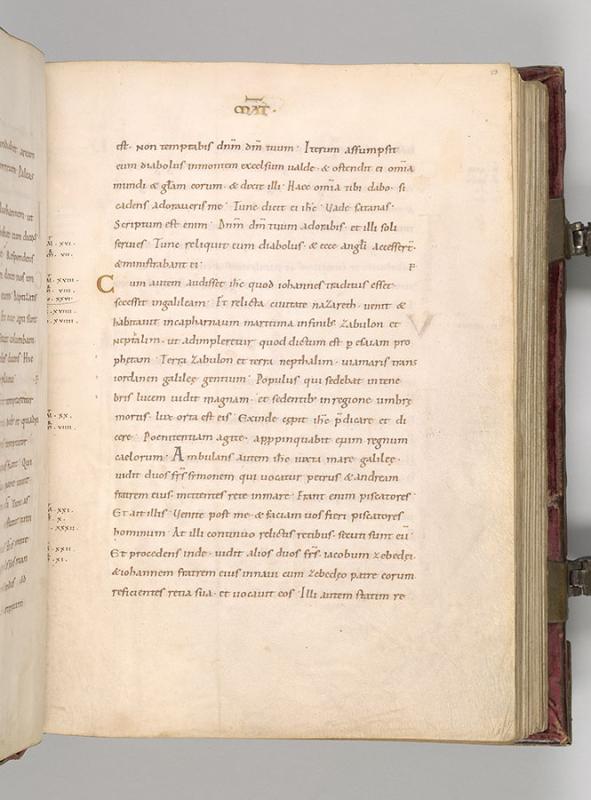 MAT̄·
est· Non temptabis dnm̄ dm̄ tuum· Iterum assumpsit
eum diabolus inmontem excelsum ualde· & ostendit ei omīa
mundi & glam̄ eorum· & dixit illi· Haec omīa tibi dabo· si
cadens adoraueris me· Tunc dicit ei ihc̄· Vade satanas·
Scriptum est enim· Dnm̄ dm̄ tuum adorabis· et illi soli
seruies· Tunc reliquit eum diabolus· & ecce angli accesser̄·
& ministrabant ei·
Cum autem audisset ihc̄ quod iohannes traditus esset·
secessit ingalileam· Et relicta ciuitate nazareth· uenit &
habitauit incapharnaum maritima infinib; zabulon et
neptalim· ut adimpleretur quod dictum est p esaiam pro
phetam· Terra zabulon et terra nepthalim· uiamaris trans
iordanen galileę gentium· Populus qui sedebat intene
bris lucem uidit magnam· et sedentib; inregione umbrę
mortis· lux orta est eis· Exinde cępit ihc̄ p̄dicare et di
cere· Poenitentiam agite· appropinquabit enim regnum
caelorum· Ambulans autem ihc̄ iuxta mare galileę·
uidit duos frs̄ simonem qui uocatur petrus & andream
fratrem eius· mittentes rete inmare· Erant enim piscatores·
Et ait illis· Uenite post me· & faciam uos fieri piscatores
hominum· At illi continuo relictis retibus· secuti sunt eū·
Et procedens inde· uidit alios duos frs̄· iacobum zebedęi·
& iohannem fratrem eius innaui cum zebedęo patre eorum·
reficientes retia sua· et uocauit eos· Illi autem statim re